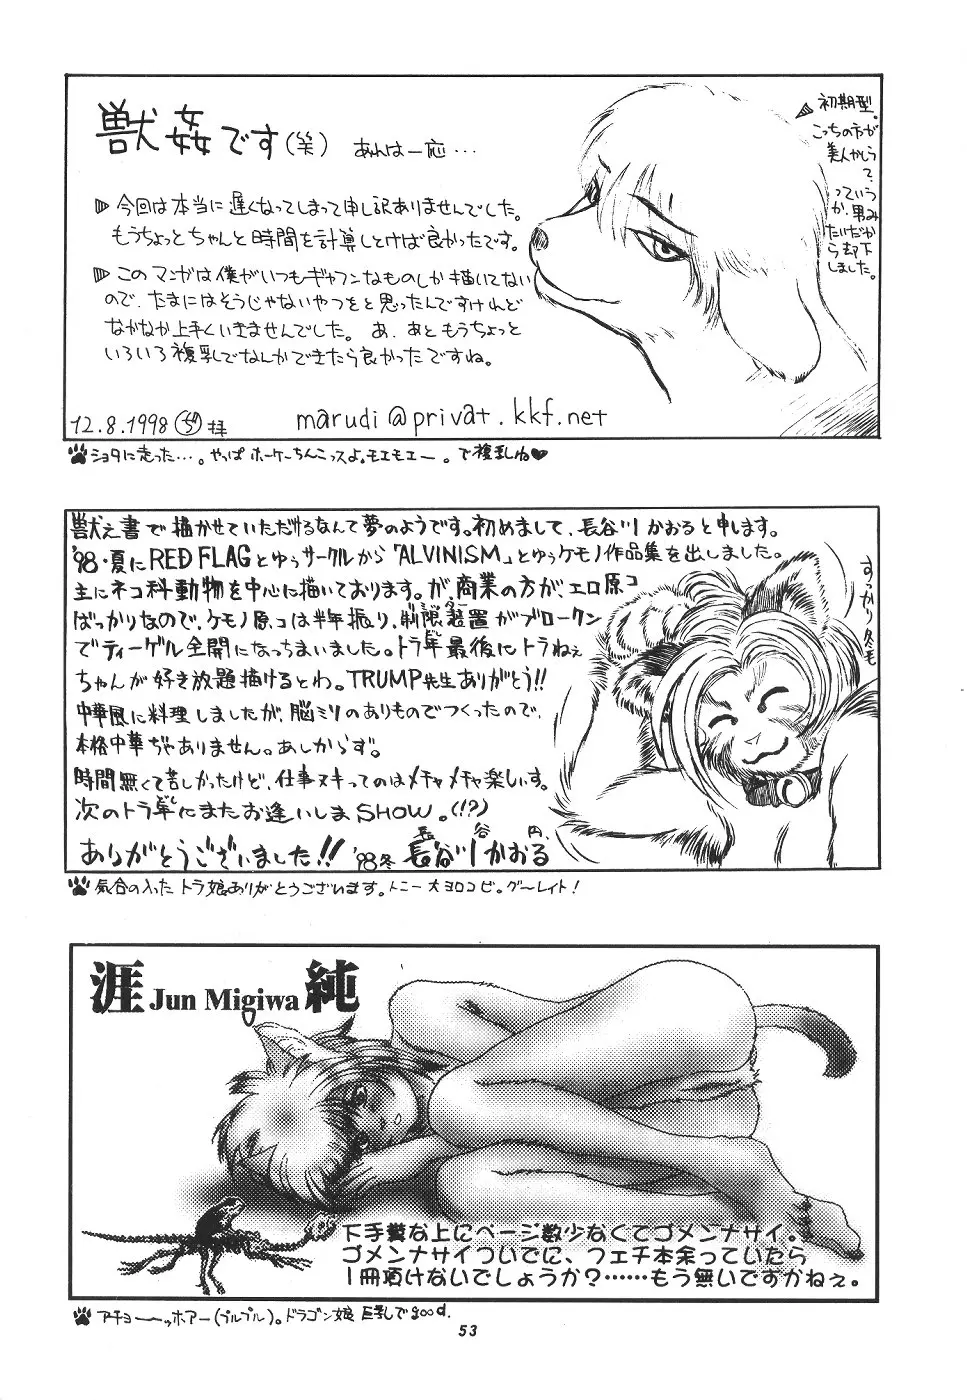 獣姦です(笑) あれは一応…
▷今回は本当に遅くなってしまって申し訳ありませんでした。
もうちょっとちゃんと時間を計算しとけば良かったです。
▷このマンガは僕がいつもギャフンなものしか描いてない
ので、たまにはそうじゃないやつをと思ったんですけれど
なかなか上手くいきませんでした。あ、あともうちょっと
いろいろ複乳でなんかできたら良かったですね。
12.8.1998 拝
marudi@privat.kkf.net
初期型。
こっちの方が
美人かしら
て?
っていう
か、男み
たいだか
ら却下
しました。
ショタに走った…。やっぱホーケーちんこっスよ。モエモエー。で複乳ね♥
獣え書で描かせていただけるなんて夢のようです。初めまして、長谷川かおると申します。
'98・夏にRED FLAGとゆぅサークルから「ALVINISM」とゆぅケモノ作品集を出しました。
主にネコ科動物を中心に描いております。が、商業の方が、エロ原コ
ばっかりなので、ケモノ原コは半年振り、制限装置がブロークン
でティーゲル全開になっちまいました。トラ年最後にトラねぇ
ちゃんが好き放題描けるとわ。TRUMP先生ありがとう!!
中華風に料理しましたが、脳ミソのありものでつくったので、
本格中華ぢゃありません。あしからず。
時間無くて苦しかったけど、仕事ヌキってのはメチャメチャ楽しいす。
次のトラ年にまたお逢いしまSHOW。(!?)
ありがとうございました!! '98冬 長谷川かおる
すっかり冬毛
気合の入ったトラ娘ありがとうございます。トニー大ヨロコビ。グ〜レイト!
涯 Jun Migiwa 純
下手糞な上にページ数少なくてゴメンナサイ。
ゴメンナサイついでに、フェチ本余っていたら
1冊頂けないでしょうか?……もう無いですかねぇ。
アチョー〜ッホアー(プルプル)。ドラゴン娘 巨乳でgood.
53